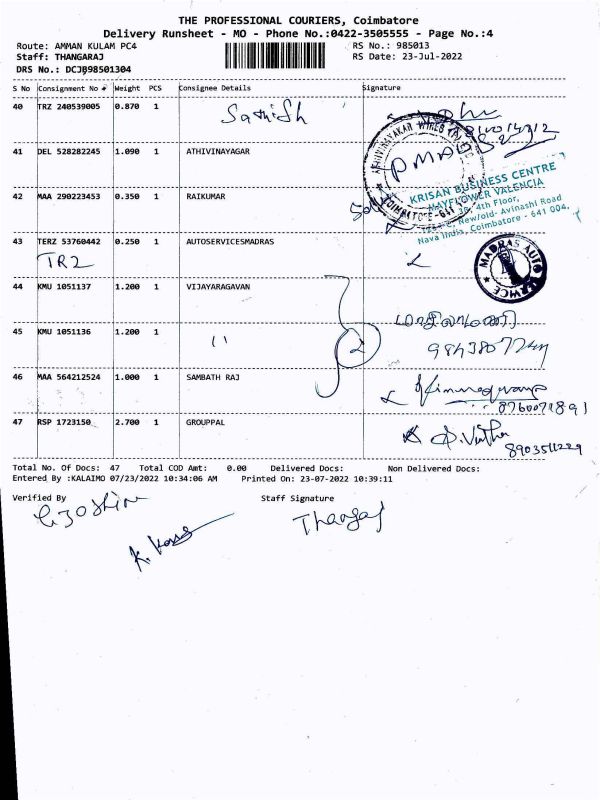 THE PROFESSIONAL COURIERS, Coimbatore
Delivery Runsheet - MO - Phone No.:0422-3505555 - Page No.:4
Route: AMMAN KULAM PC4
RS No.: 985013
Staff: THANGARAJ
RS Date: 23-Jul-2022
DRS No.: DCJB98501304
S No Consignment No # Weight PCS Consignee Details Signature
40 TRZ 240539005 0.870 1 Sathish
41 DEL 528282245 1.090 1 ATHIVINAYAGAR
PMA
KRISAN BUSINESS CENTRE
MAYFLOWER VALENCIA
4th Floor,
New/old- Avinashi Road
Nava India, Coimbatore - 641 004.
42 MAA 290223453 0.350 1 RAIKUMAR
43 TERZ 53760442 0.250 1 AUTOSERVICESMADRAS
TRZ
MADRAS AUTO SERVICE
44 KMU 1051137 1.200 1 VIJAYARAGAVAN
45 KMU 1051136 1.200 1 11
2
9843807744
46 MAA 564212524 1.000 1 SAMBATH RAJ
8760071891
47 RSP 1723150 2.700 1 GROUPPAL
8903511229
Total No. Of Docs: 47 Total COD Amt: 0.00 Delivered Docs: Non Delivered Docs:
Entered By :KALAIMO 07/23/2022 10:34:06 AM Printed On: 23-07-2022 10:39:11
Verified By Staff Signature
Thangaraj